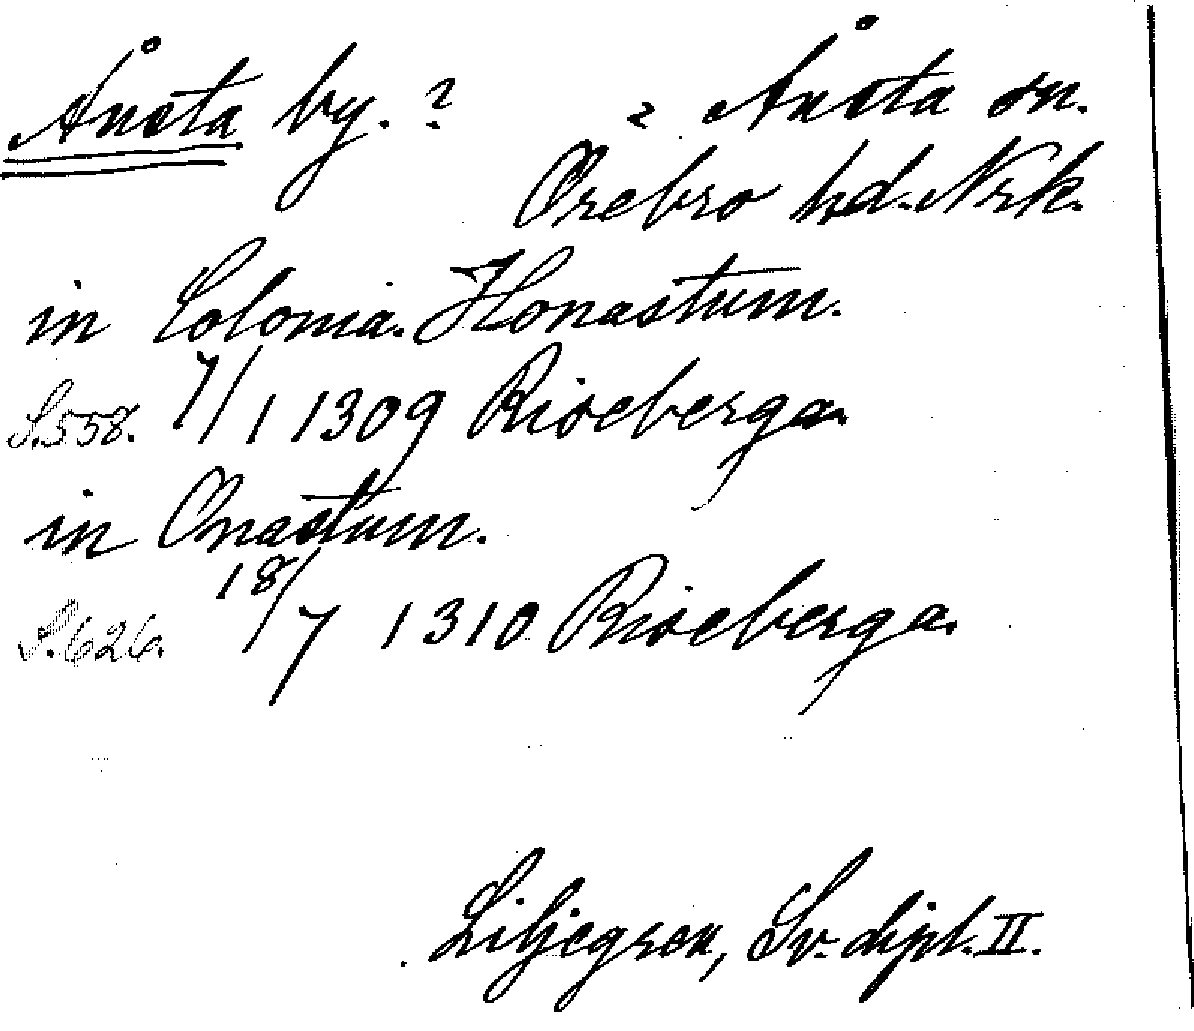 Ånsta by. ? ? Ånsta sn.
Örebro hd. Nrk.
in Colonia. Honastum.
S. 558. 7/1 1309 Riseberga.
in Onastum.
S. 626. 18/7 1310 Riseberga.
Liljegren, Sv. dipl. II.